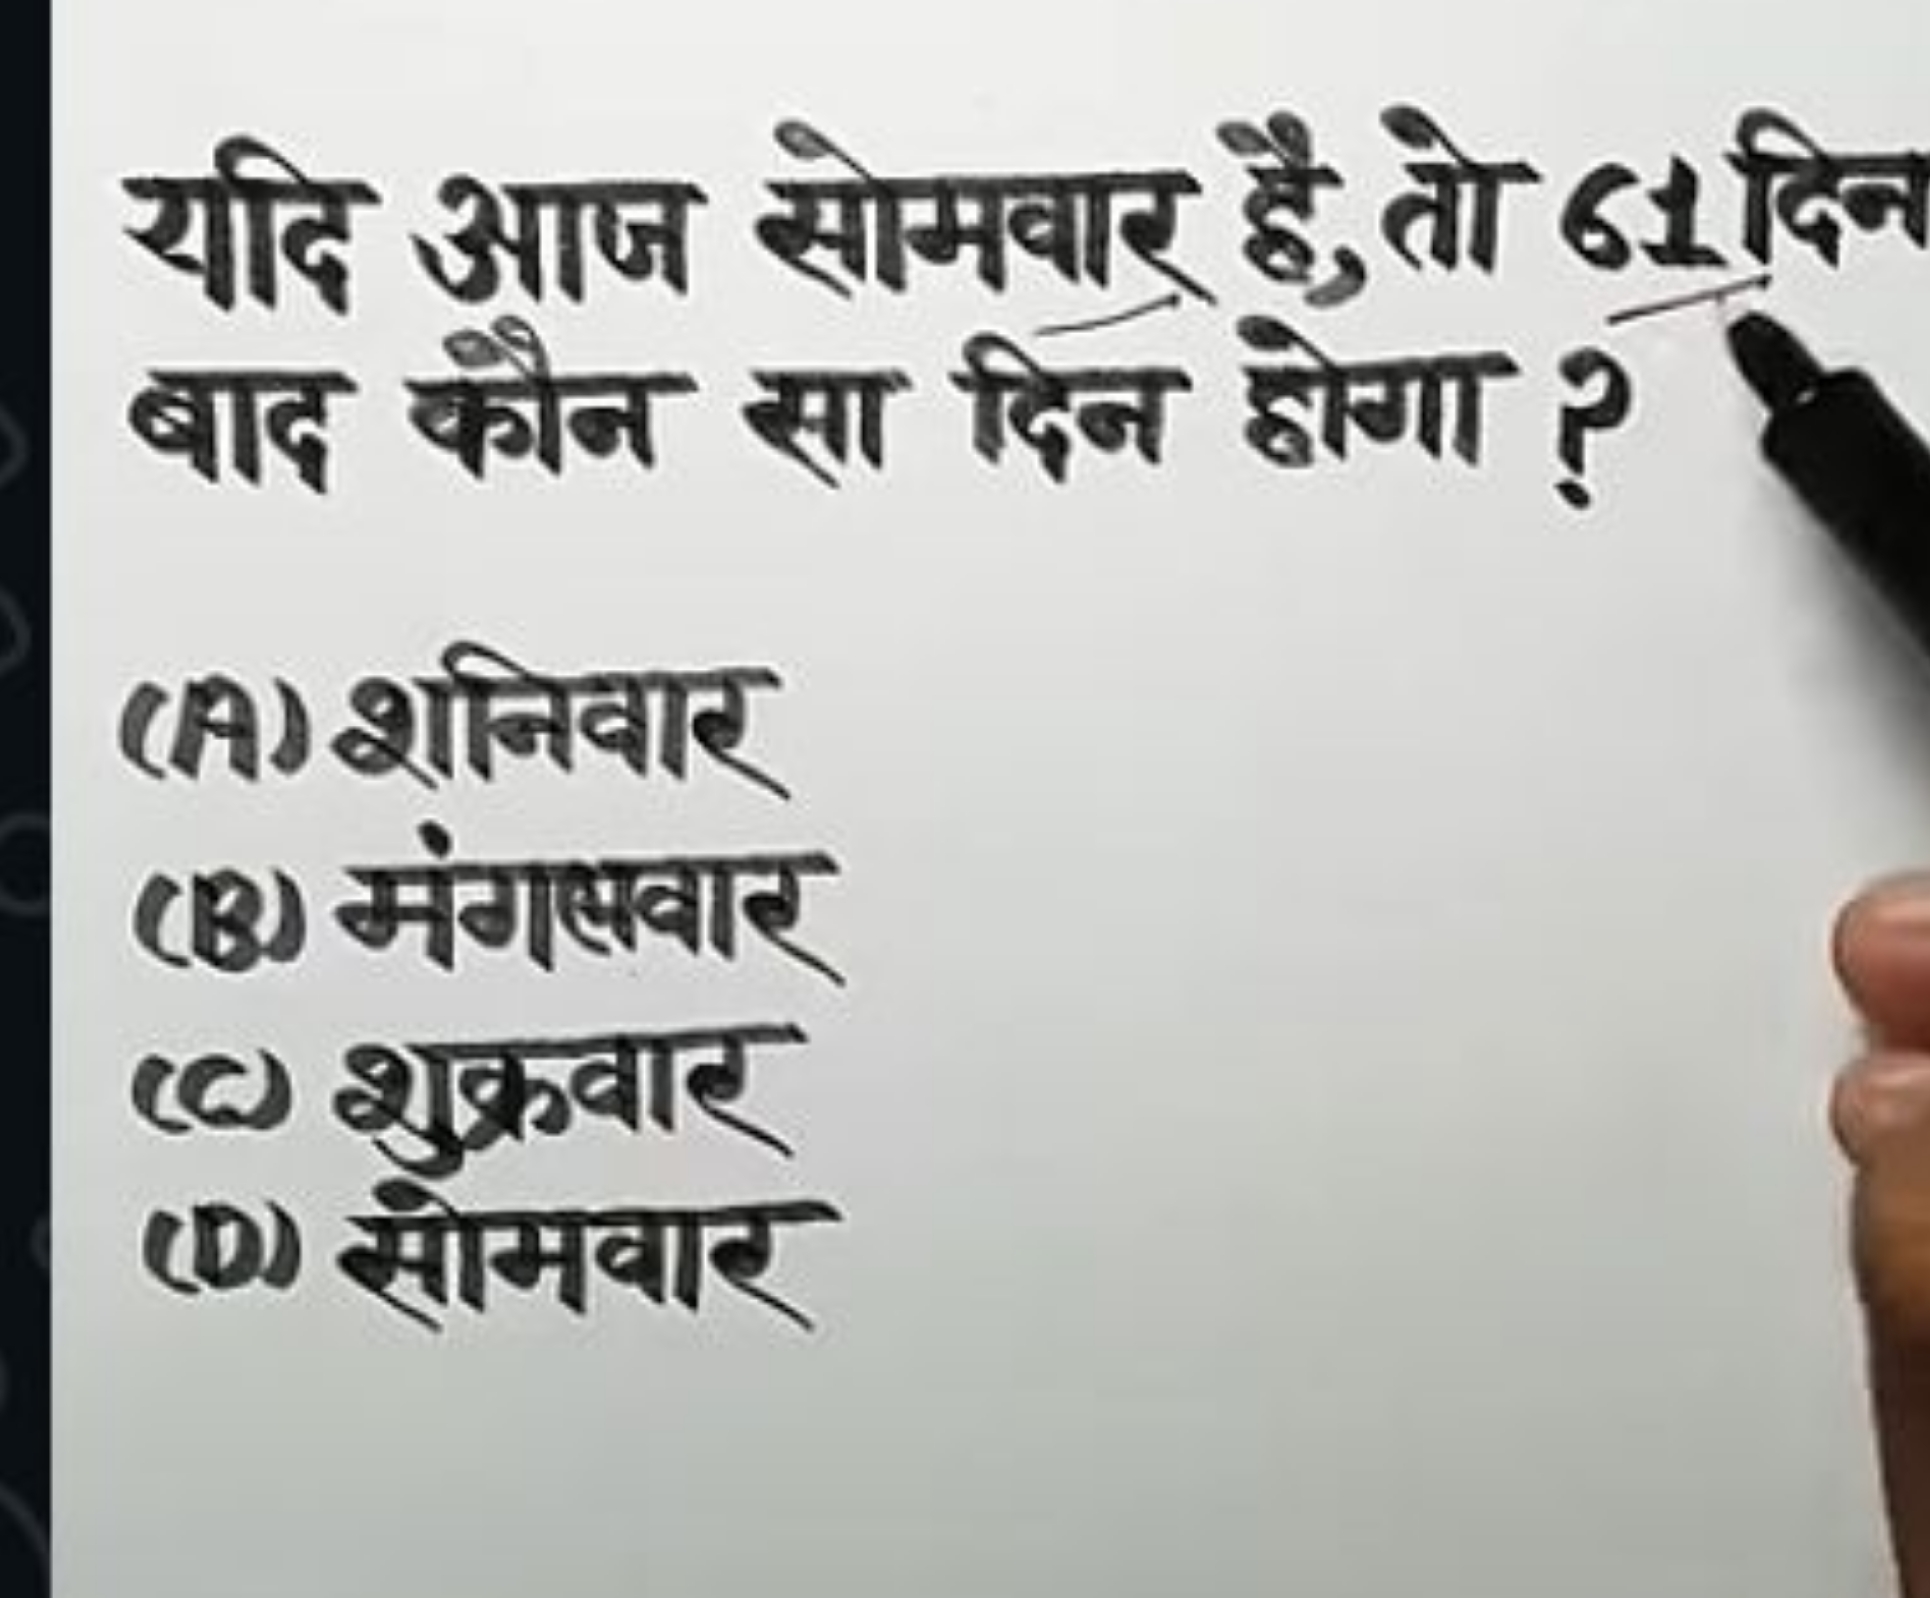 यदि आज सोमवार है, तो 61 दिन
बाद कौन सा दिन होगा ?
(A) शनिवार
(B) मंगलवार
(C) शुक्रवार
(D) सोमवार